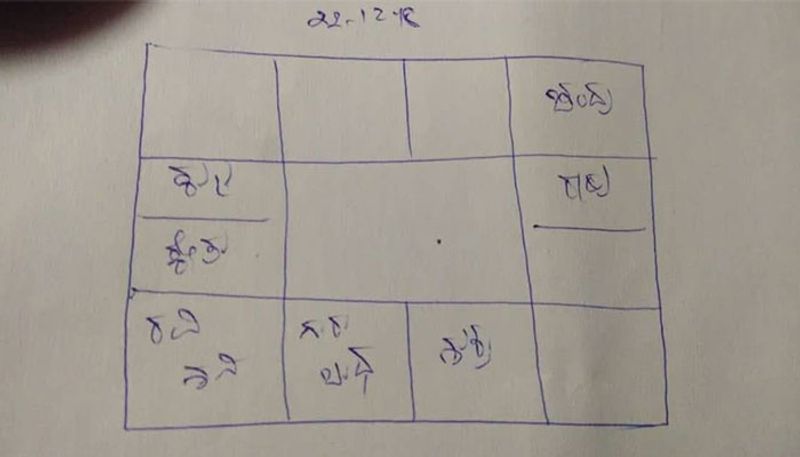 22-12-18
ಚಂದ್ರ
ಕುಜ
ರಾಹು
ಕೇತು
ರವಿ
ಗುರು
ಶುಕ್ರ
ಶನಿ
ಬುಧ